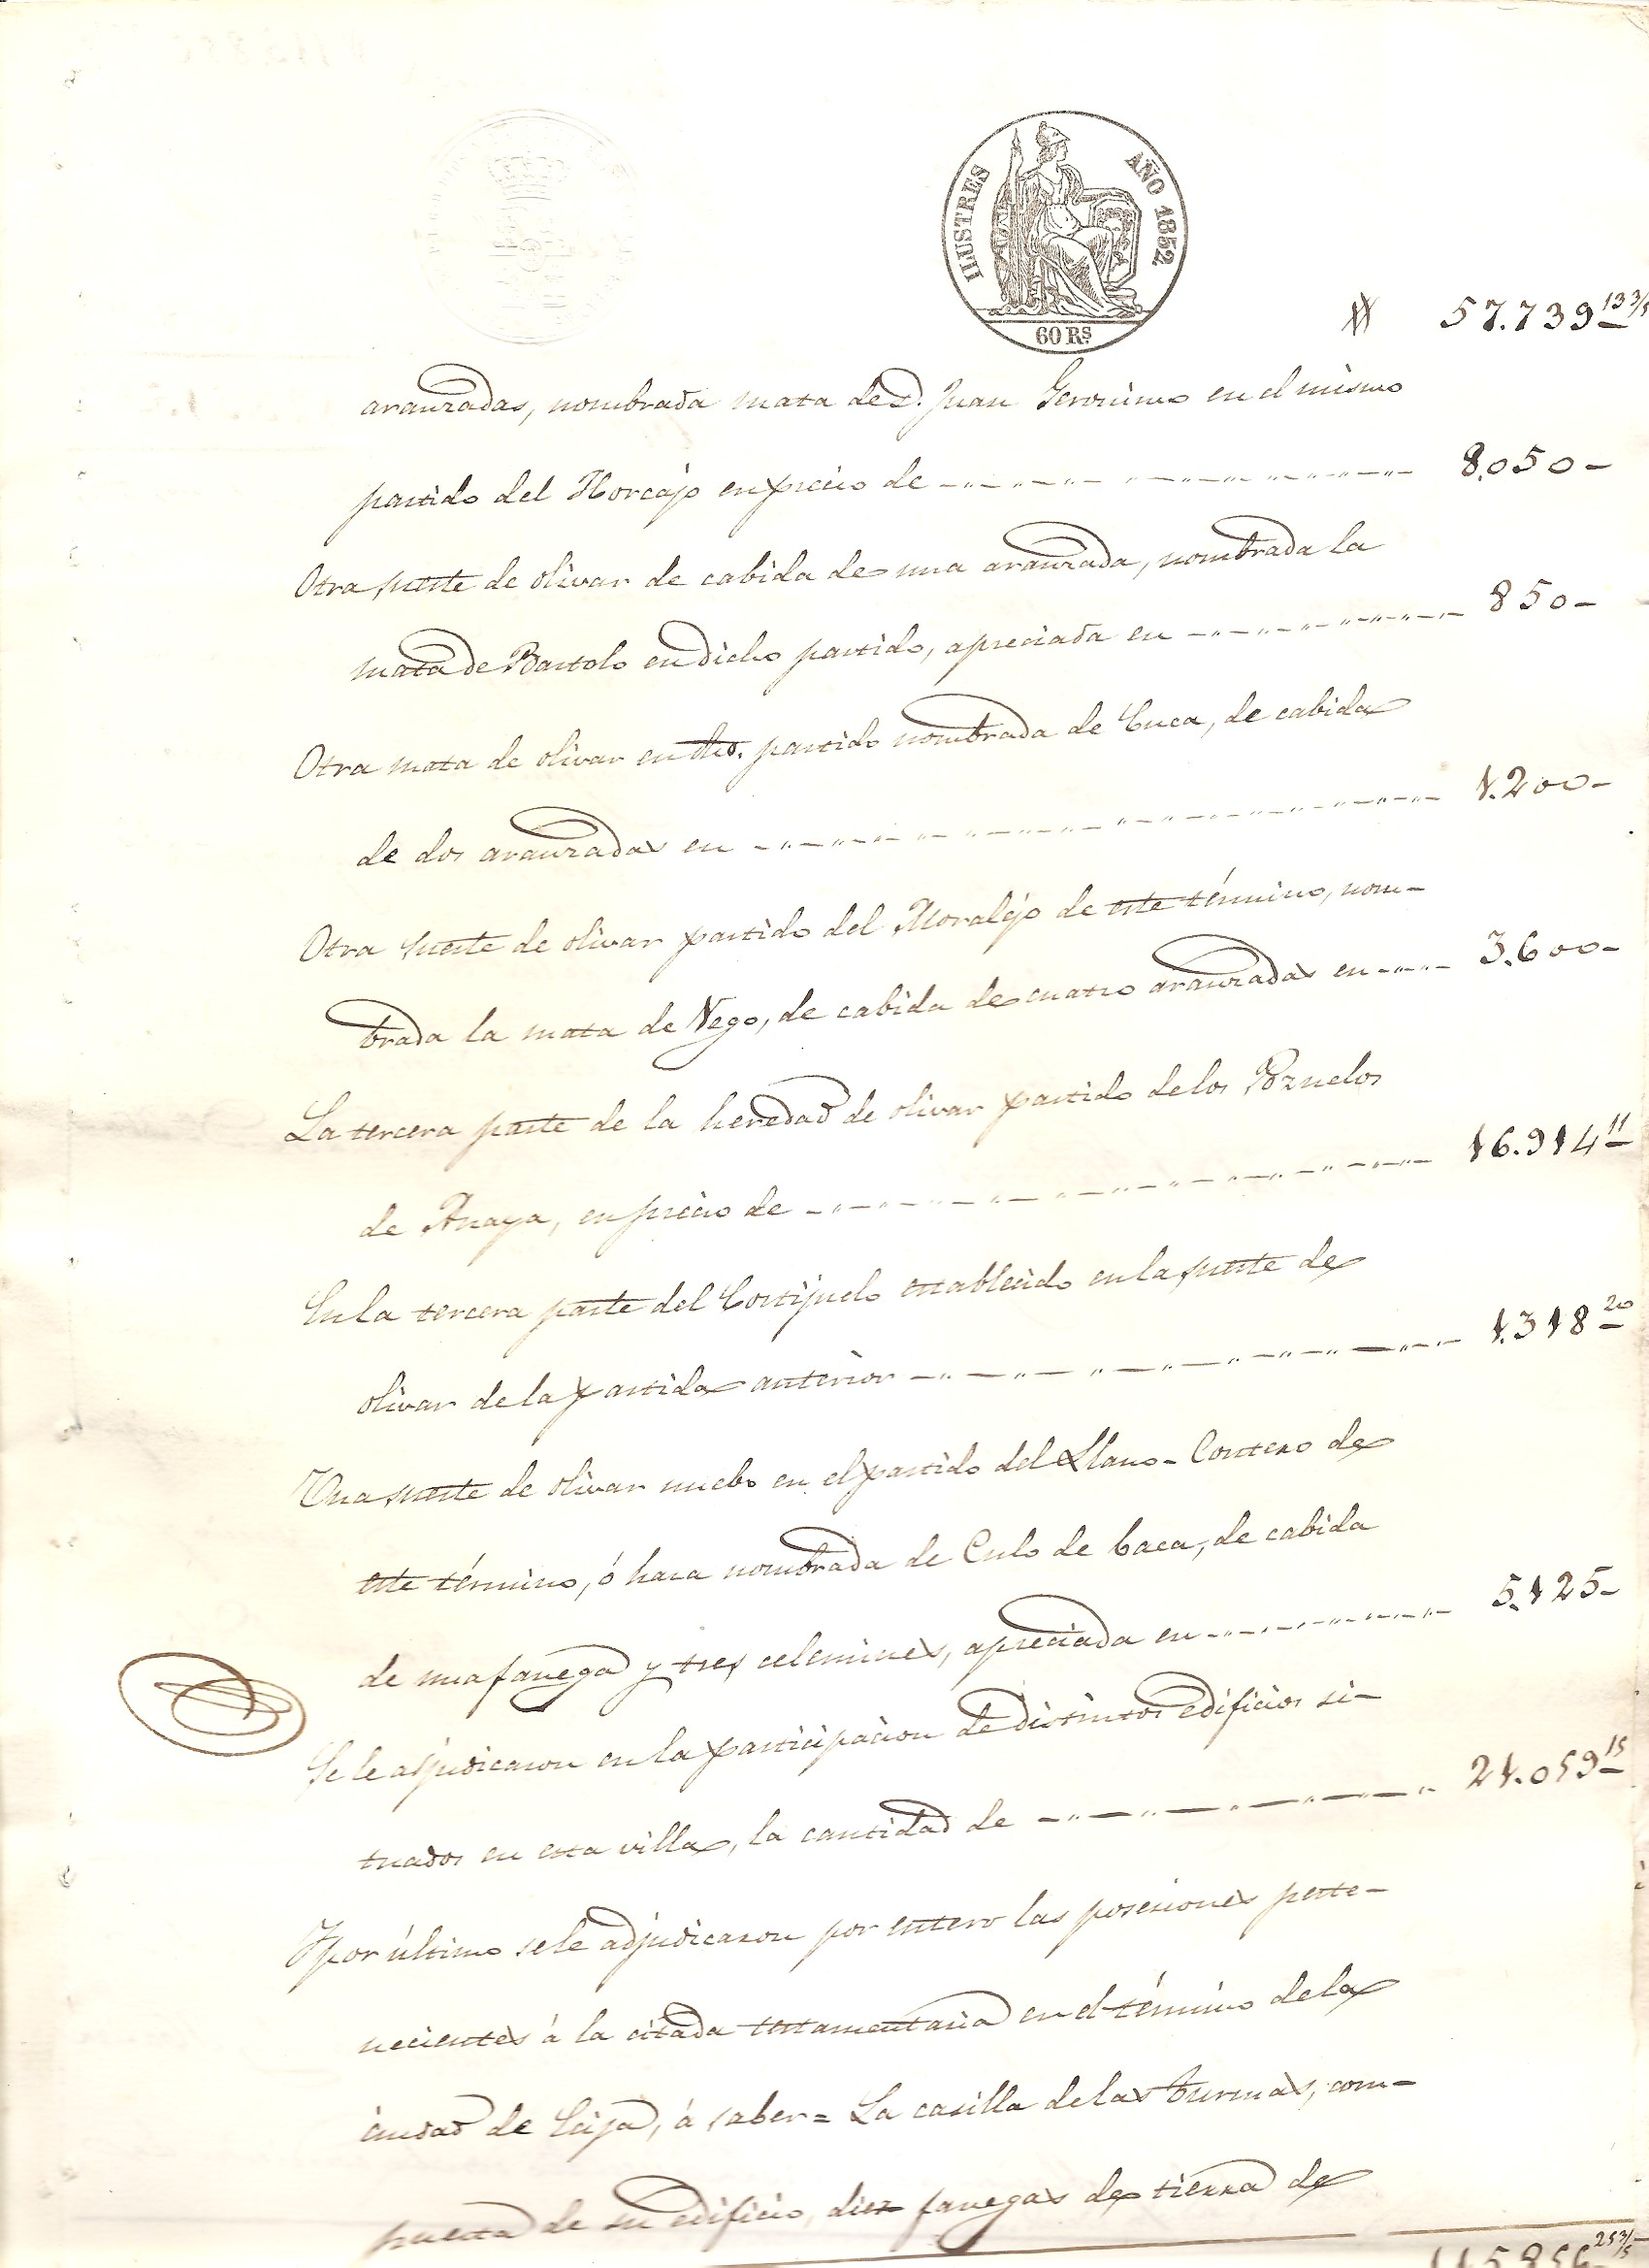 ILUSTRES AÑO 1852.
60 RS.
57.739 13 3/5
aranzadas, nombrada mata de D. Juan Geronimo en el mismo
partido del Horcajo en precio de 8.050
Otra suerte de olivar de cabida de una aranzada, nombrada la
mata de Bartolo en dicho partido, apreciada en 850
Otra mata de olivar en dho. partido nombrada de Cuca, de cabida
de dos aranzadas en 1.200
Otra suerte de olivar partido del Moralejo de este término, nom-
brada la mata de Vego, de cabida de cuatro aranzadas en 3.600
La tercera parte de la heredad de olivar partido de los Pozuelos
de Anaya, en precio de 16.914 11
En la tercera parte del Cortijuelo establecido en la suerte de
olivar de la partida anterior 1.318 20
Una suerte de olivar nuebo en el partido del Llano-Contero de
este término, ó haza nombrada de Culo de baca, de cabida
de una fanega y tres celemines, apreciada en 5.125
Se le adjudicaron en la participacion de distintos edificios si-
tuados en esta villa, la cantidad de 21.059 15
Y por último se le adjudicaron por entero las posesiones perte-
necientes á la citada testamentaria en el término de la
ciudad de Ecija, á saber = La casilla de las Turmas, com-
puesta de su edificio, diez fanegas de tierra de
115.856 25 3/5